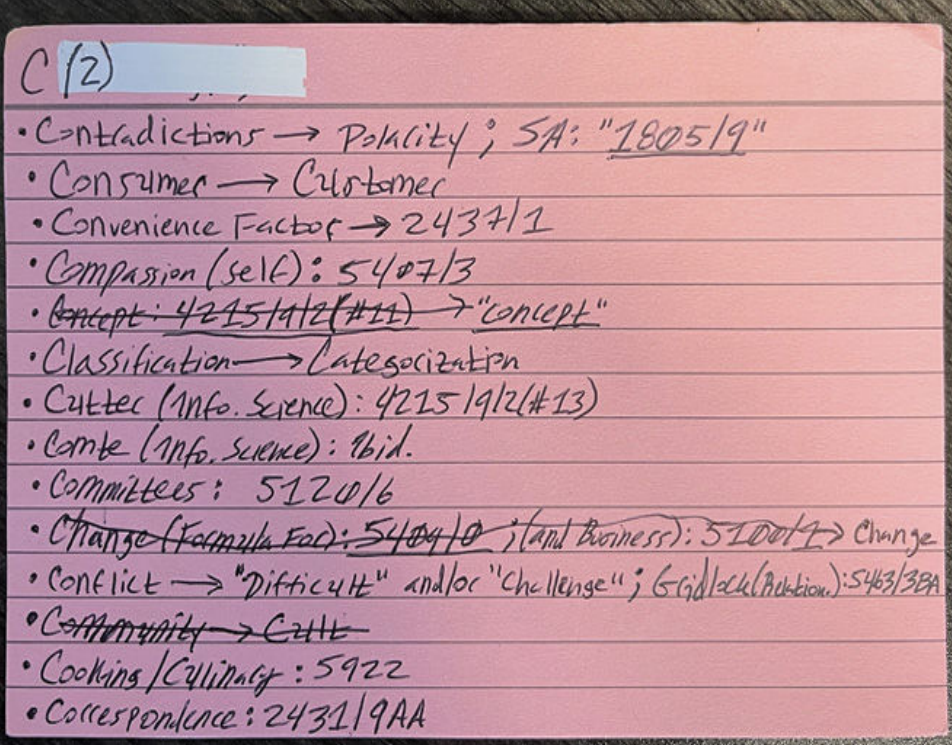 C (2)
• Contradictions → Polarity ; SA: "1805/9"
• Consumer → Customer
• Convenience Factor → 2437/1
• Compassion (self) : 5407/3
• Concept : 4215/9/2(#11) → "concept"
• Classification → Categorization
• Cutter (Info. Science) : 4215/9/2(#13)
• Comte (Info. Science) : Ibid.
• Committees : 5120/6
• Change (Formula For) : 5409/0 ; (and Business) : 5100/1 → Change
• Conflict → "Difficult" and/or "Challenge" ; Gridlock (Relation.) : 5463/3BA
• Community → Cult
• Cooking/Culinary : 5922
• Correspondence : 2431/9AA